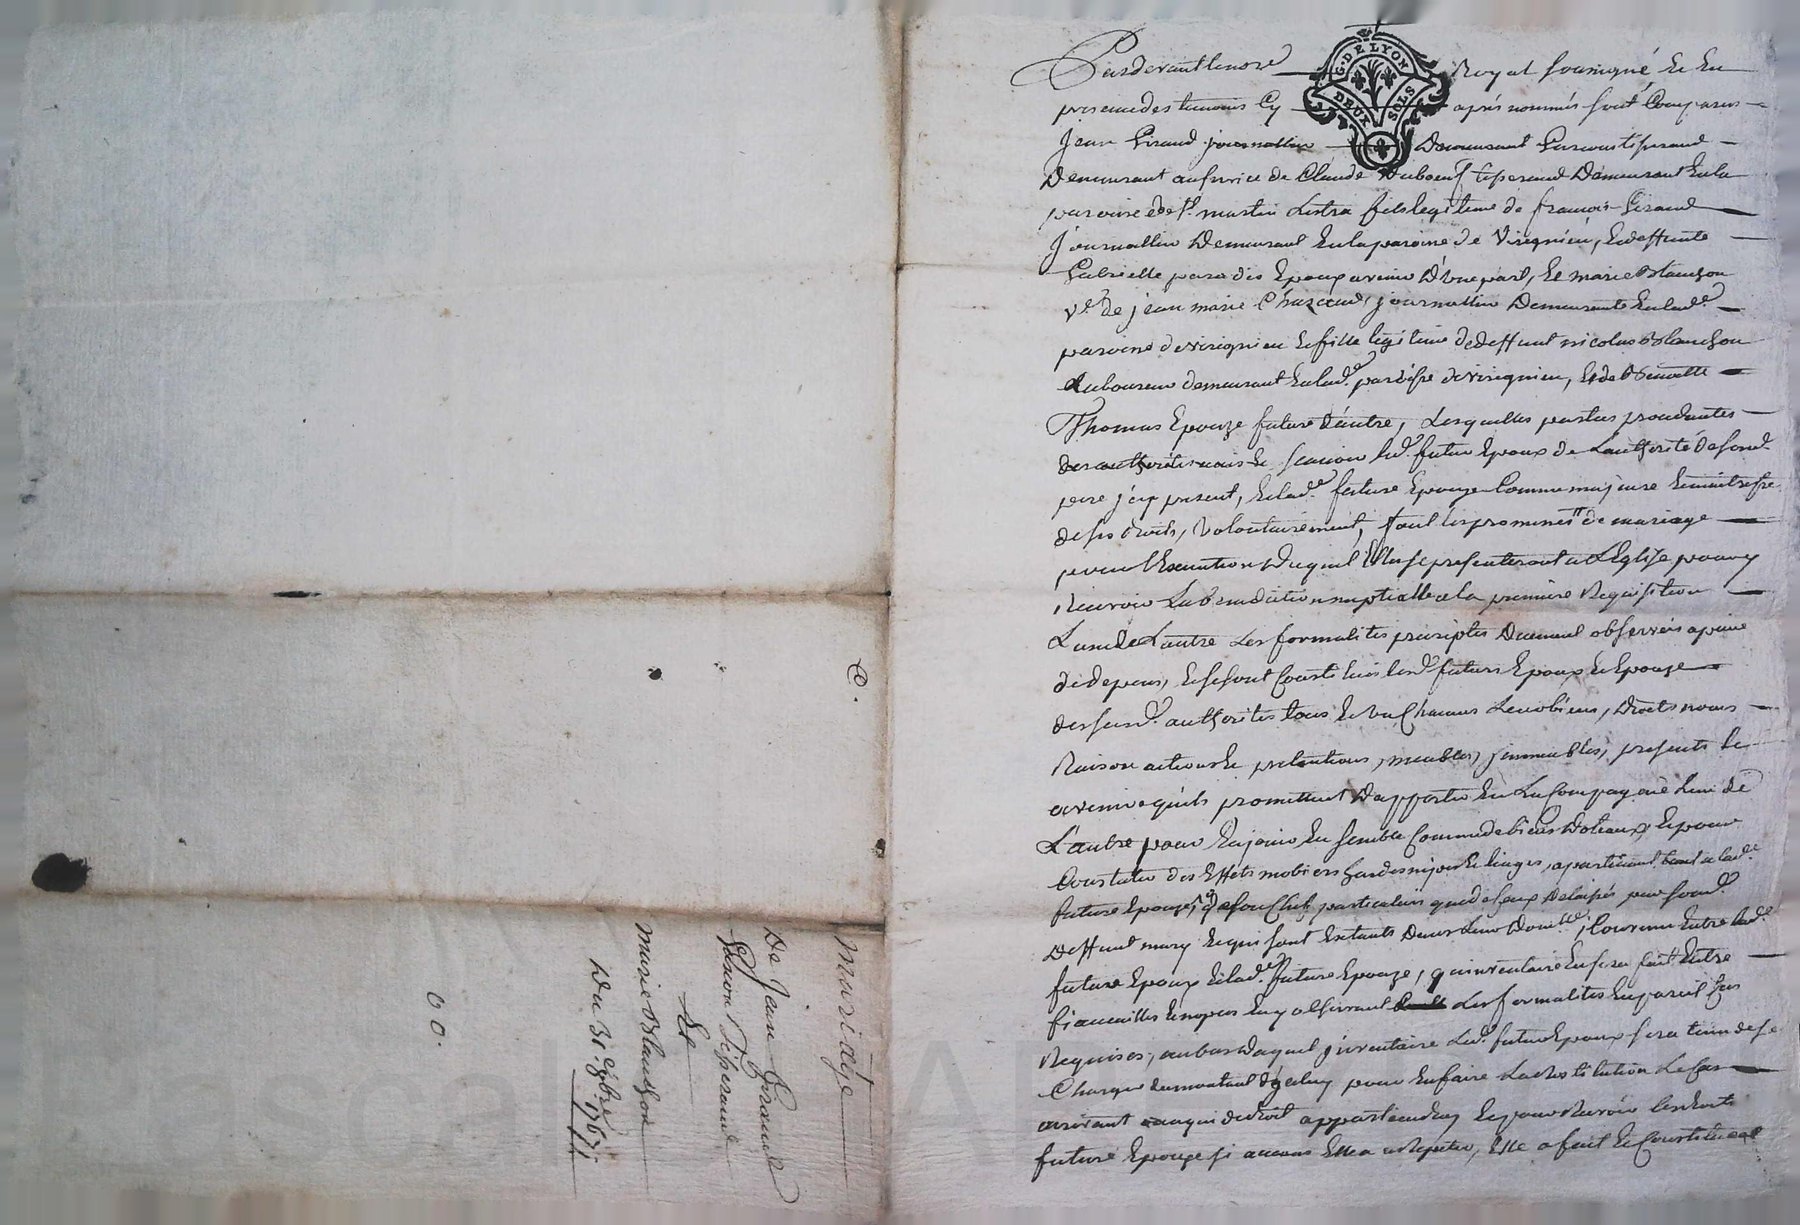 Pardevant le no.re Royal soussigné et en
presence des temoins cy aprés nommés sont comparus
Jean Giraud journallier Demeurant
Demeurant au service de Claude Duboeuf tisserand Demeurant en la
paroisse de st martin Lestra fils legitime de francois Giraud
journallier Demeurant en la paroisse de Virignieu, et deffunte
Gabrielle paradis Epoux avenir D'une part, Et marie Blanchon
Ve. de jean marie journallier Demeurante en lad.e
paroisse de virignieu et fille legitime de deffunt nicolas Blanchon
Laboureur demeurant en lad.e paroisse de virignieu, et de Benoitte
Thomas Epouze future d'autre, Lesquelles parties procedantes
des authorités scavoir led. futur Epoux de L'authorité de son d.
pere j'cy present, et lad.e future Epouze comme majeure et maitresse
de ses droits, volontairement, font les promesses de mariage
pour l'Execution Duquel Elles se presenteront a L'Eglise pour y
Recevoir La benediction nuptialle a la premiere Requisition
L'un de L'autre Les formalités prescriptes Duement observées a peine
de depens, et se sont constitués lesd. futurs Epoux et Epouze
des susd. authorités tous et un chacuns Leurs biens, Droits noms
Raisons actions et pretentions, meubles, jmmeubles, presents et
avenir qu'ils promettent D'apporter en La Compagnie L'un de
L'autre pour En jouir Ensemble comme de biens Dotaux, Et pour
Constater des Effets mobiers hardes nipes et linges, apartenant a lad.e
future Epouze, de son Chef particulier que de Ceux Delaissés par son d.
Deffunt mary et qui sont Extants Dans Leur Dom.lle, Convenu Entre led.
future Epoux et lad.e future Epouze, qu'inventaire En sera fait Entre
fiancailles et nopces En y observant Les formalités En pareil Cas
Requises, au bas Duquel jnventaire Led. futur Epoux sera tenu de se
Charger du montant d'yceluy pour En faire La Restitution Le Cas
arrivant a qui de droit appartiendra, Et pour
future Epouze si aucuns Elle a a Repeter, Elle a fait et Constitué
C.
Mariage
De Jean Giraud
Garcon Tisserand
Et
Marie Blanchon
Du 31.e 8bre 1767.